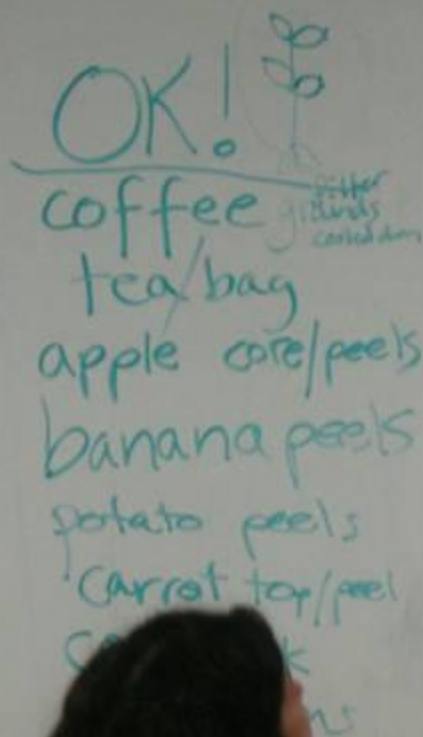 OK!
coffee
filter
grounds
cooled down
tea/bag
apple core/peels
banana peels
potato peels
carrot top/peel